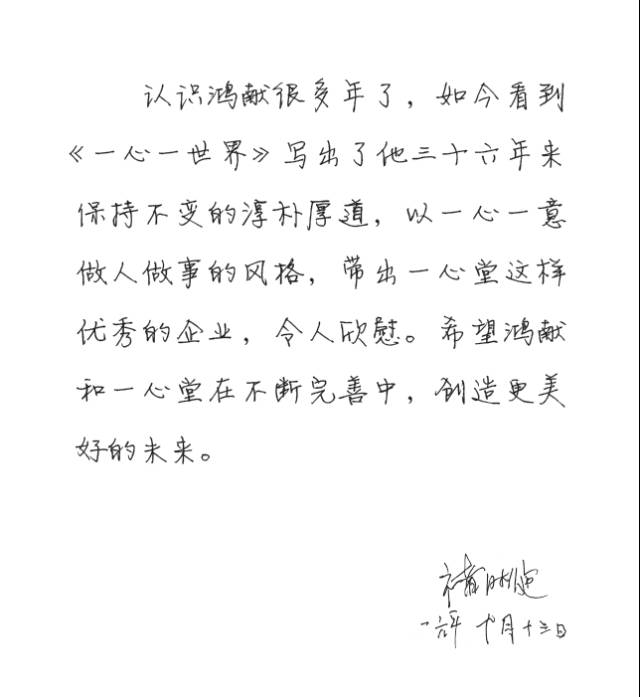 认识鸿献很多年了，如今看到
《一心一世界》写出了他三十六年来
保持不变的淳朴厚道，以一心一意
做人做事的风格，带出一心堂这样
优秀的企业，令人欣慰。希望鸿献
和一心堂在不断完善中，创造更美
好的未来。
褚时健
一六年十月十三日